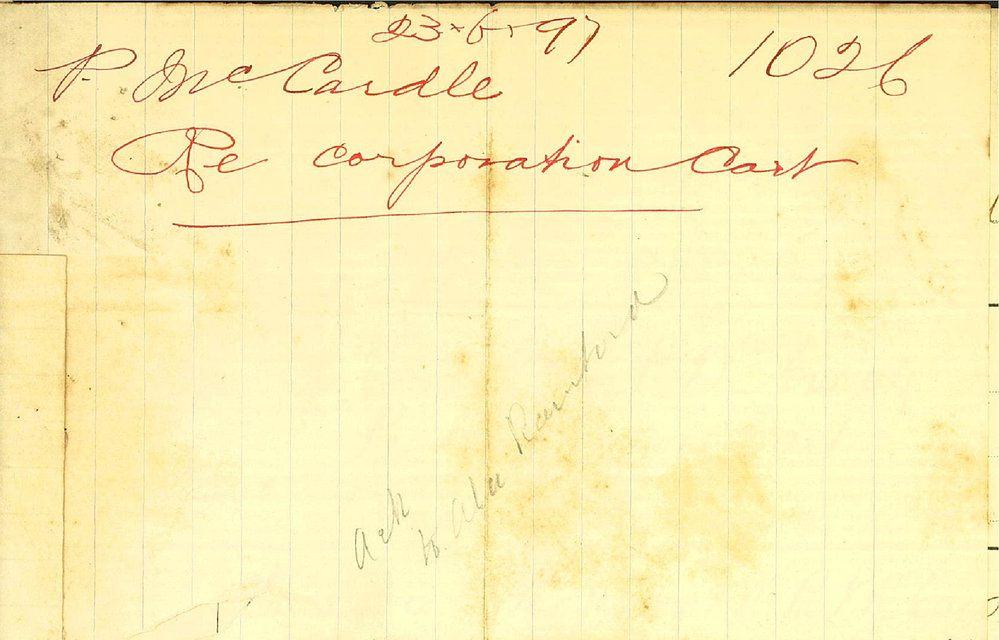 23-6-97
P. McCardle 1026
Re corporation Cart
Ack
to Ald